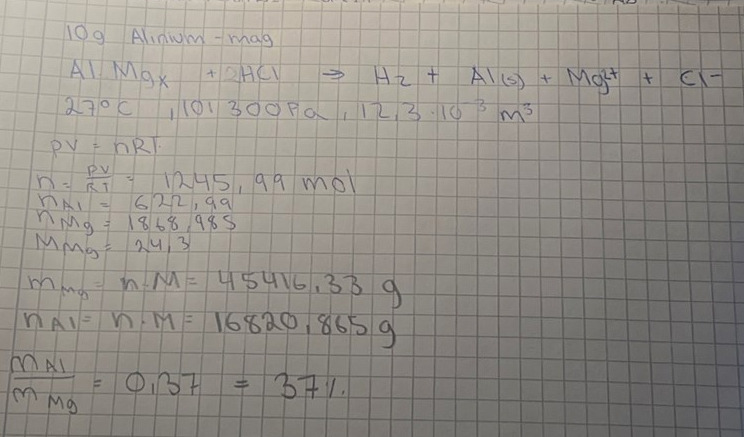 10g Alinium-mag
Al Mgx + 2HCl → H₂ + Al(s) + Mg²⁺ + Cl⁻
27°C, 101 300 Pa, 12,3·10³ m³
pV = nRT
n = PV/RT = 1245,99 mol
nAl = 622,99
nMg = 1868,985
MMg = 24,3
mMg = n·M = 45416,33 g
nAl = n·M = 16820,865g
mAl/mMg = 0,37 = 37%.